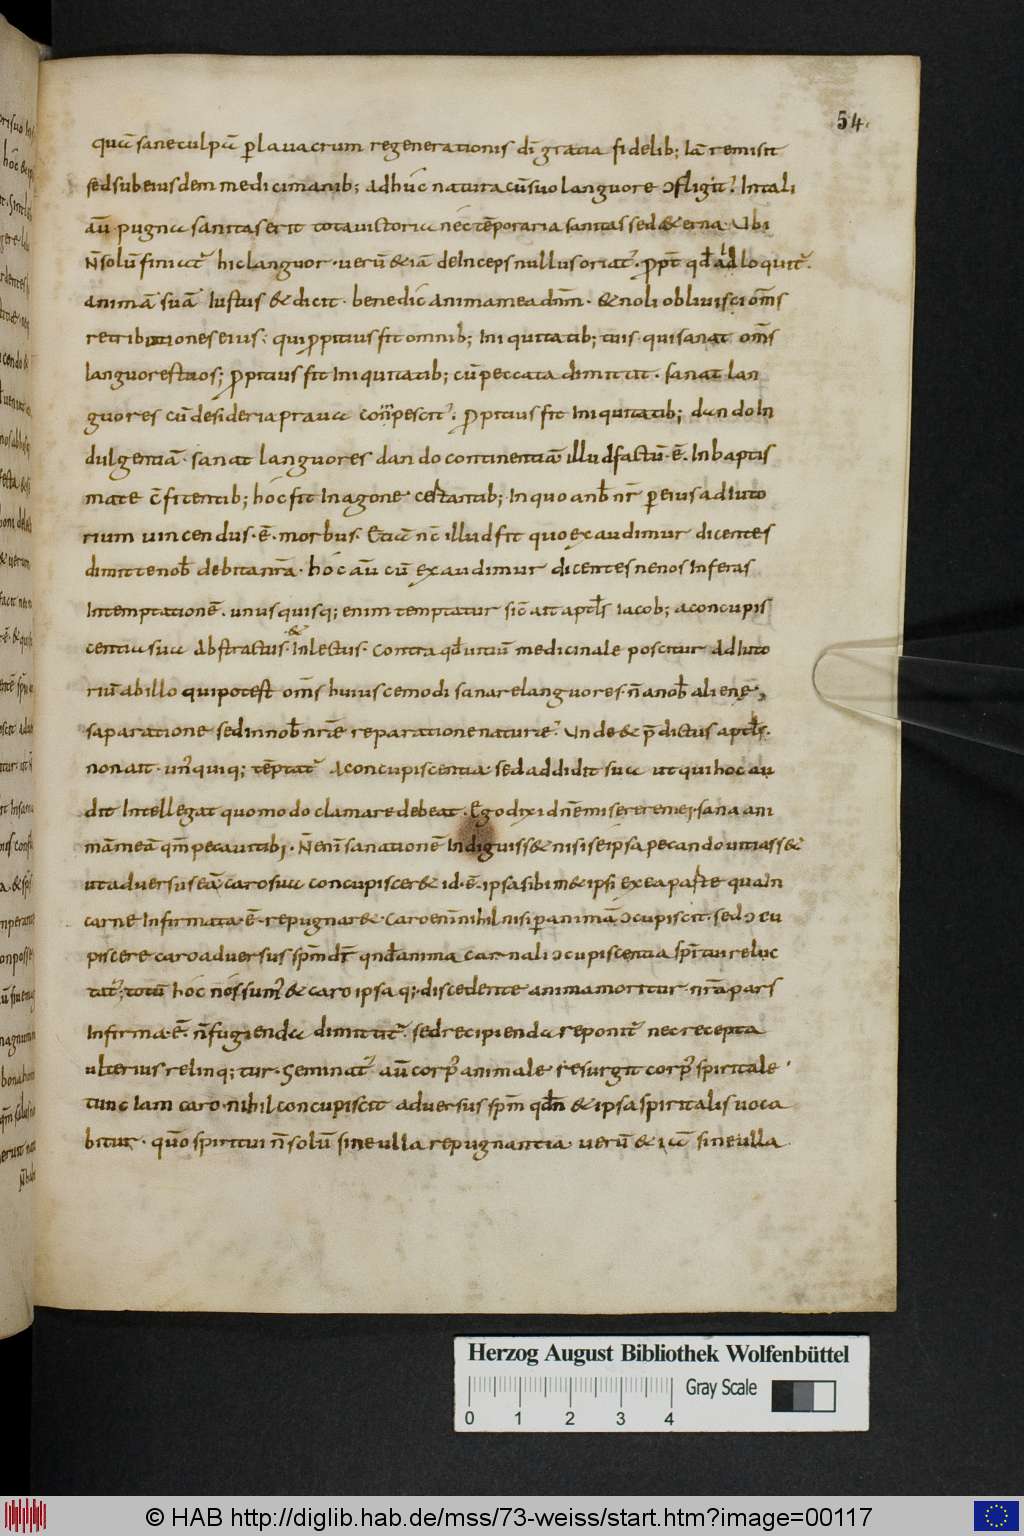 54.
quā sane culpā ꝑ lauacrum regenerationis dī gratia fidelib; iā remisit
sed sub eiusdem medici manib; adhuc natura cū suo languore ɔfligit. In tali
aū pugna sanitas erit tota uictoria nec tēporaria sanitas sed &erna. Ubi
n̄ solū finiat̉ hic languor. uerū & iā deInceps nullus oriat̉. ꝓpt̄ qđ ad loquit̉.
animā suā Iustus & dicit. benedic anima mea dn̄m. & noli obliuisci om̄s
retributiones eius. qui ꝓpitius fit omnib; Iniquitatib; tuis. qui sanat om̄s
languores tuos; ꝓpitius fit Iniquitatib; cū peccata dimittit. sanat lan
guores cū desideria praua conpescit. ꝓpitius fit Iniquitatib; dando In
dulgentiā. sanat languores dando continentiā illud factū. ē. In baptis
mate c̄fitentib; hoc fit In agone certantib; In quo a nob̄ nr̄ ꝑ eius adiuto
rium uincendus. ē. morbus. Etiā n̄c illud fit quo exaudimur dicentes
dimitte nob̄ debita nr̄a. hoc aū cū exaudimur dicentes ne nos Inferas
In temptationē. unusquisq; enim temptatur sic̄ ait apt̄ls iacob; a concupis
centia sua abstractus. & Inlectus. contra qđ uitiū medicinale poscitur adiuto
riū ab illo qui potest om̄s huiuscemodi sanare languores. n̄ a nob̄ aliene
saparatione sed in nob̄ nr̄e reparatione naturae. Unde & p̄dictus apt̄ls.
non ait. un̉quisq; tēptat̉ a concupiscentia. sed addidit sua ut qui hoc au
dit Intellegat quomodo clamare debeat. Ego dixi dn̄e miserere mei. sana ani
mā meā qm̄ pecaui tibi. N̄ eni sanationē Indiguiss& nisi se ipsa pecando uitiass&
ut aduersus eā caro sua concupiscer& id. ē. ipsa sibim& ipsi ex ea parte qua In
carne Infirmata. ē. repugnar&. Caro enī nihil nisi ꝑ animā ɔcupiscit. sed ɔcu
piscere caro aduersus spm̄ dr̄ qn̄d anima carnali ɔcupiscentia spiritui reluc
tat̉; totū hoc nos sum̉ & caro ipsa q; discedente anima moritur nr̄a pars
Infirma. ē. n̄ fugienda dimittit̉. sed recipienda reponit̉ nec recepta
ulterius relinq;tur. Seminat̉ aū corp̉ animale resurgit corp̉ spiritale
tunc Iam caro. nihil concupiscit aduersus spm̄ qđn & ipsa spiritalis uoca
bitur. quō spiritui n̄ solū sine ulla repugnantia uerū & iā sine ulla
Herzog August Bibliothek Wolfenbüttel
Gray Scale
0 1 2 3 4
© HAB http://diglib.hab.de/mss/73-weiss/start.htm?image=00117